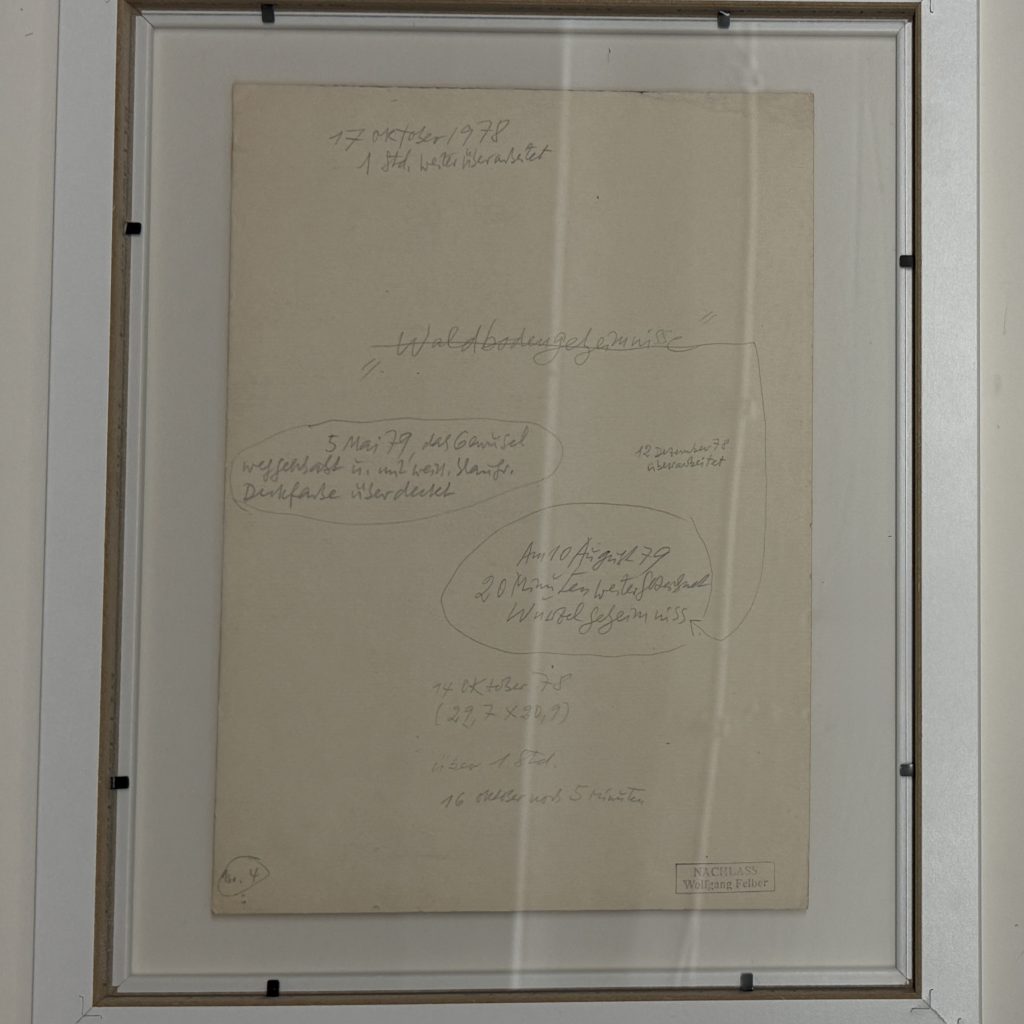 17 Oktober 1978
1 Std. weiter überarbeitet
"Waldbodengeheimnisse"
5 Mai 79, das Gewusel
weggeschabt u. mit weiss.
Deckfarbe überdeckt
12 Dezember 78
überarbeitet
Am 10 August 79
20 Minuten weitergezeichnet
Wurzelgeheimniss
14 Oktober 78
(29,7 x 20,9)
über 1 Std.
16 Oktober noch 5 Minuten
Nr. 4
NACHLASS
Wolfgang Felber